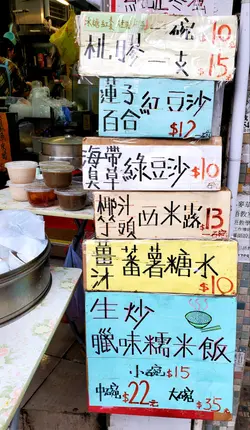 一碗 $10
桃膠 一支 $15
蓮子
百合 紅豆沙
$12
海帶
臭草 綠豆沙 $10
椰汁
芋頭 西米露 $13
一碗
薑
汁 蕃薯糖水
$10
生炒
臘味糯米飯
小碗 $15
中碗 $22 大碗 $35